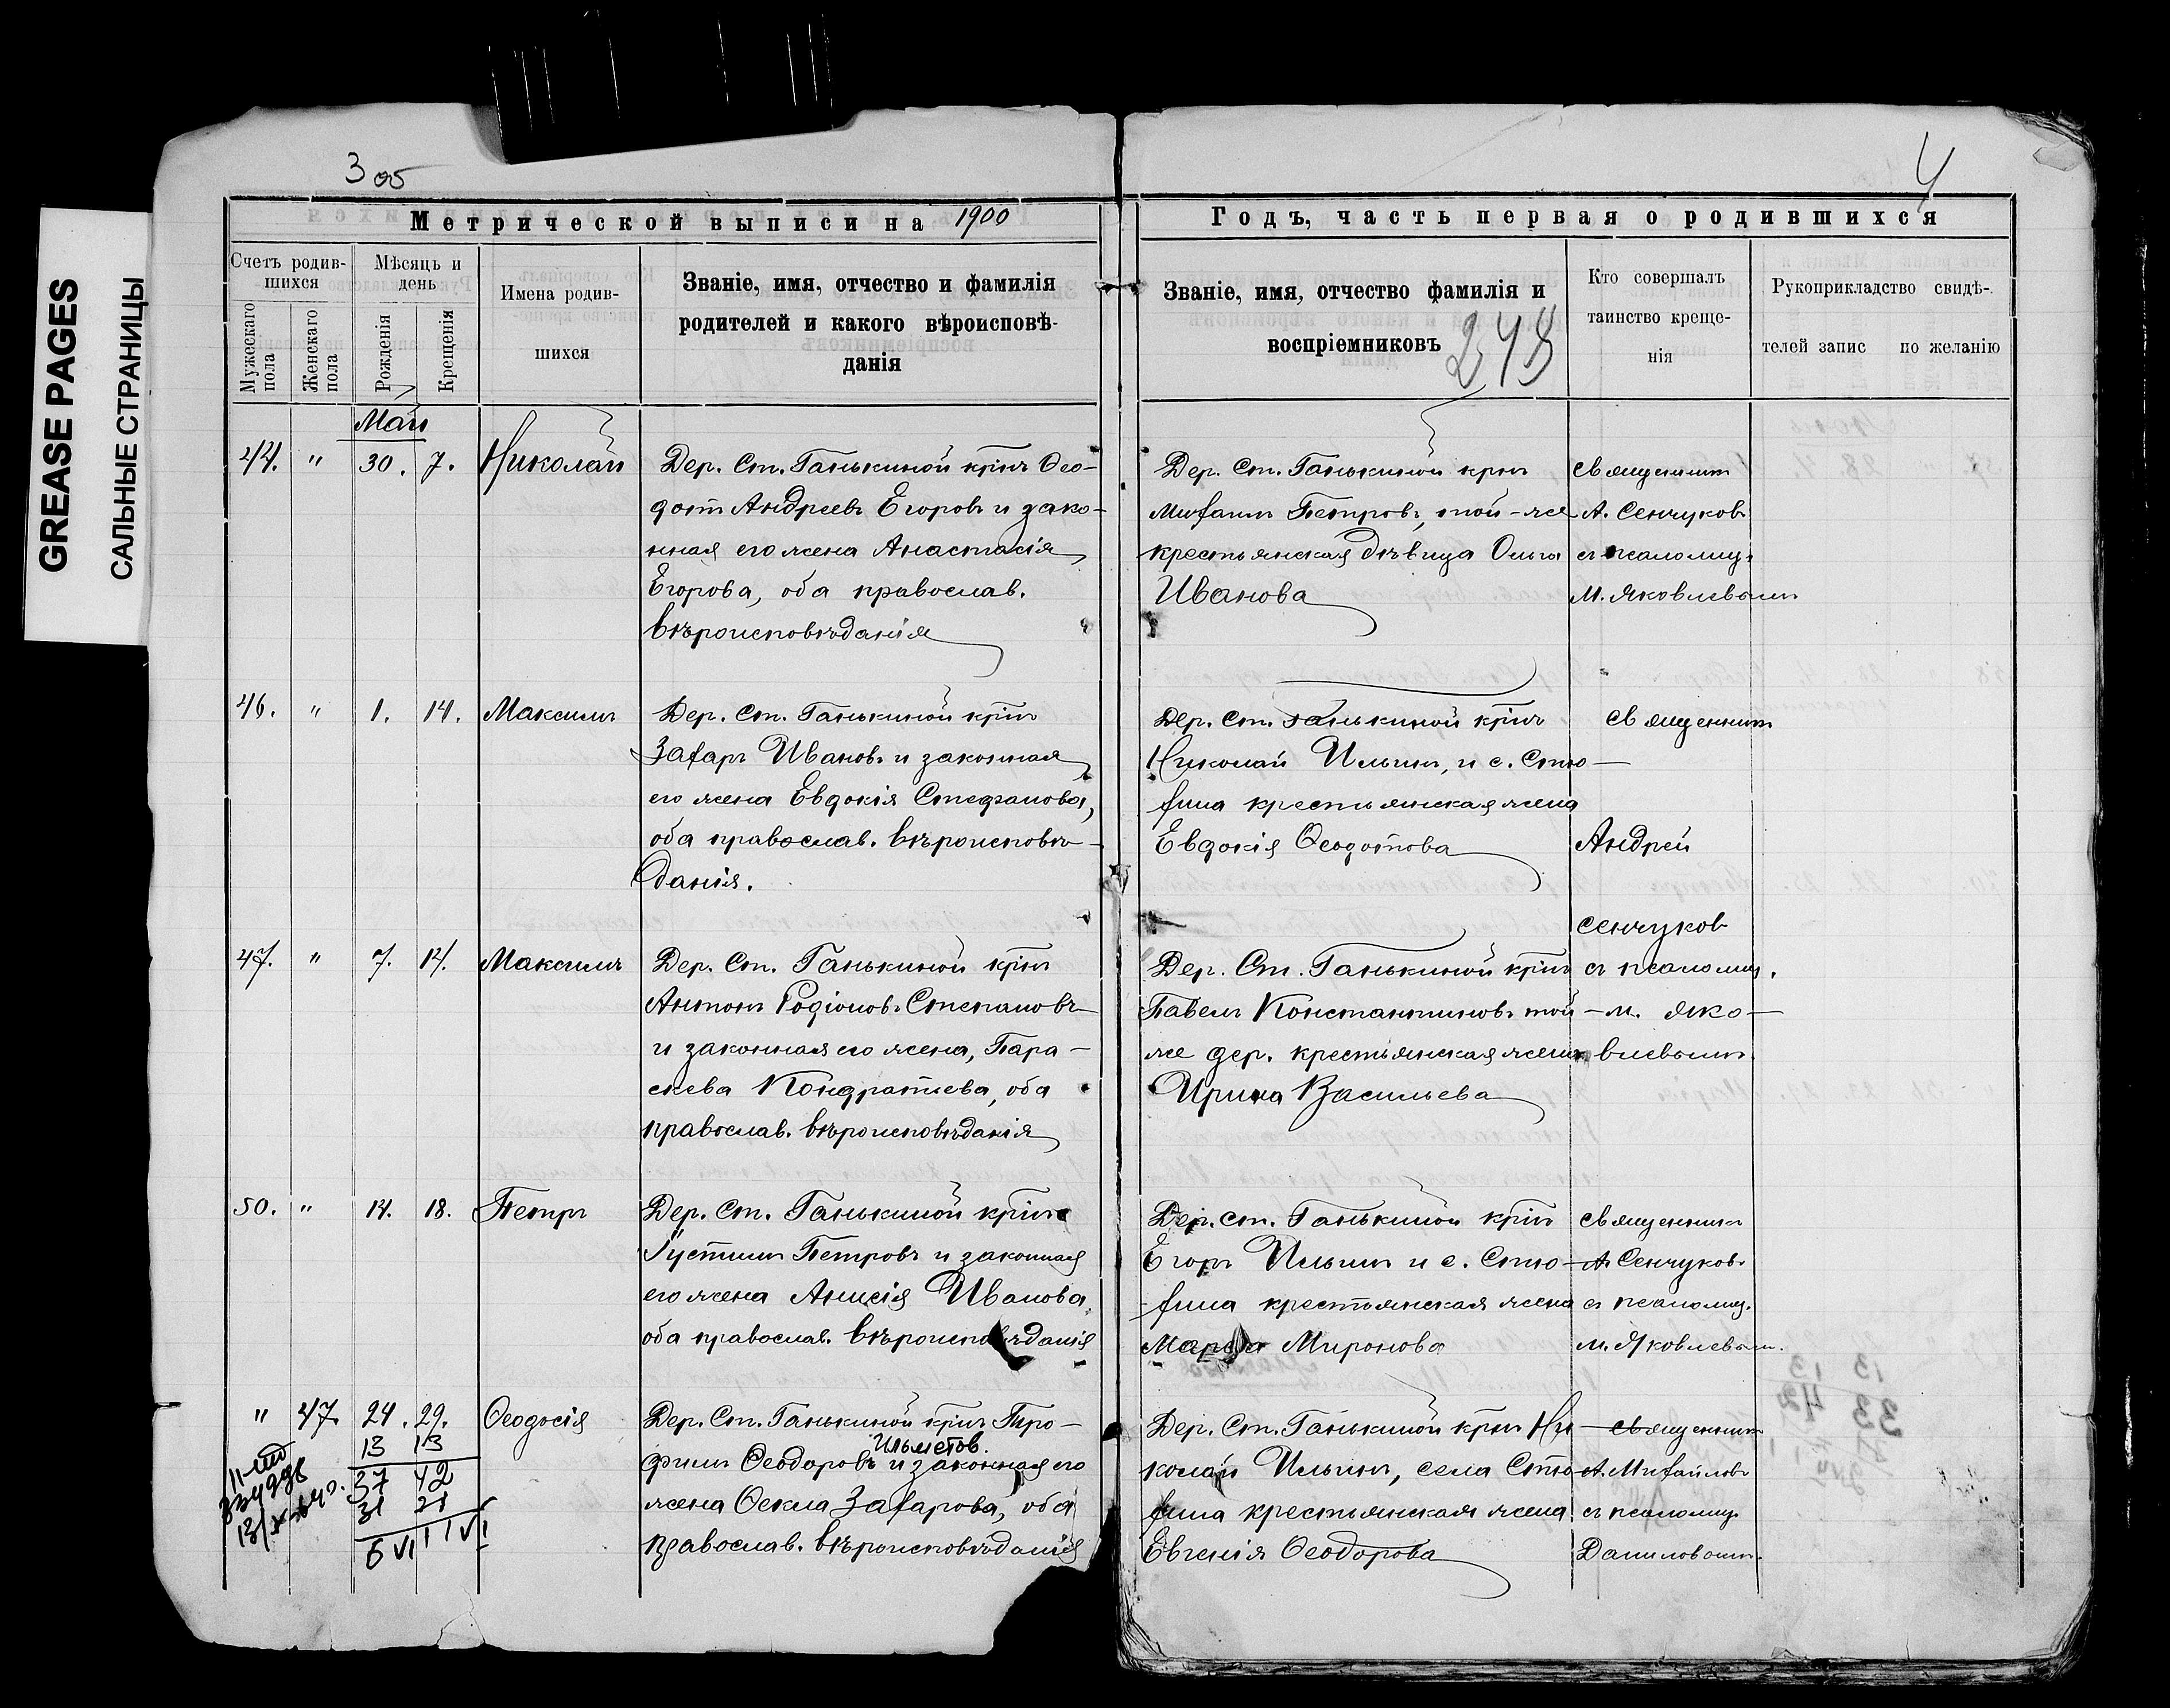 GREASE PAGES
САЛЬНЫЕ СТРАНИЦЫ
3 об
4
Метрической выписи на 1900
Годъ, часть первая о родившихся
Счетъ родив-
шихся
Мужескаго пола
Женскаго пола
Мѣсяць и
день
Рожденія
Крещенія
Имена родив-
шихся
Званіе, имя, отчество и фамилія
родителей и какого вѣроисповѣ-
данія
Званіе, имя, отчество фамилія и
воспріемниковъ
248
Кто совершалъ
таинство креще-
нія
Рукоприкладство свидѣ-
телей запис по желанію
Май
44. " 30. 7. Николай
Дер. Ст. Ганькиной крінъ Ѳео-
дотъ Андреевъ Егоровъ и зако-
нная его жена Анастасія
Егорова, оба православ.
вѣроисповѣданія
Дер. Ст. Ганькиной крнъ
Михаилъ Петровъ, той-же
крестьянская дѣвица Ольга
Иванова
Священникъ
А. Сенчуковъ
съ псаломщ.
М. Яковлевымъ
46. " 1. 14. Максимъ
Дер. Ст. Ганькиной крінъ
Захаръ Ивановъ и законная
его жена Евдокія Стефанова,
оба православ. вѣроисповѣ-
данія.
Дер. Ст. Ганькиной крінъ
Николай Ильинъ, и с. Стю-
хина крестьянская жена
Евдокія Ѳеодотова
Священникъ
Андрей
Сенчуковъ
47. " 7. 14. Максимъ
Дер. Ст. Ганькиной крінъ
Антонъ Родіоновъ Степановъ
и законная его жена, Пара-
скева Кондратьева, оба
православ. вѣроисповѣданія
Дер. Ст. Ганькиной крінъ
Павелъ Константиновъ той-
же дер. крестьянская жена
Ирина Васильева
съ псаломщ.
М. Яко-
влевымъ.
50. " 14. 18. Петръ
Дер. Ст. Ганькиной крінъ
Густинъ Петровъ и законная
его жена Анисія Иванова,
оба православ. вѣроисповѣданія
Дер. Ст. Ганькиной крінъ
Егоръ Ильинъ и с. Стю-
хина крестьянская жена
Марѳа Миронова
Священникъ
А. Сенчуковъ
съ псаломщ.
М. Яковлевым.
" 47. 24. 29. Ѳеодосія
13 13
37 42
31 31
6 VI 11 VI
Дер. Ст. Ганькиной крінъ Тро-
Ильметов.
фимъ Ѳеодоровъ и законная его
жена Ѳекла Захарова, оба
православ. вѣроисповѣданія
Дер. Ст. Ганькиной крнъ Ни-
колай Ильинъ, села Стю-
хина крестьянская жена
Евгенія Ѳеодорова
Священникъ
А. Михайловъ
съ псаломщ.
Даниловымъ.